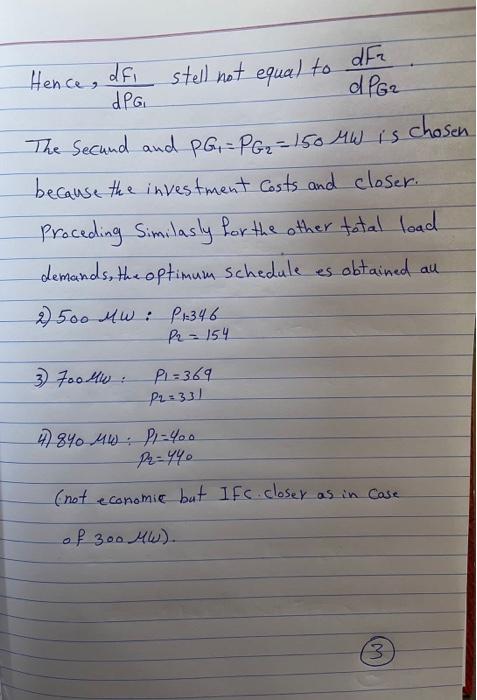 Hence, dF1/dPG1 stell not equal to dF2/dPG2.
The Secund and PG1=PG2=150 MW is chosen
because the investment Costs and closer.
Proceding Similasly for the other total load
demands, the optimum schedule es obtained au
2) 500 MW : P1=346
P2 = 154
3) 700 MW : P1=369
P2=331
4) 840 MW : P1=400
P2=440
(not economic but IFC. closer as in Case
of 300 MW).
3